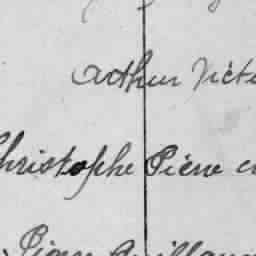 Arthur Victo
Christophe Pierre e
Pierre Guillaum